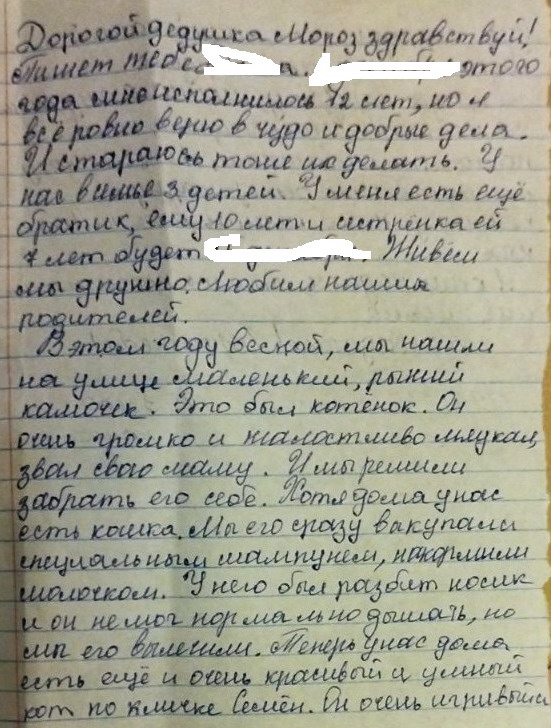 Дорогой дедушка Мороз здравствуй!
Пишет тебе а этого
года мне исполнилось 12 лет, но я
всё ровно верю в чудо и добрые дела.
И стараюсь тоже их делать. У
нас в симье 3 детей. У меня есть ещё
братик, ему 10 лет и систрёнка ей
7 лет будет Живём
мы дружно. Любим наших
родителей.
В этом году весной, мы нашли
на улице маленький, рыжий
камочек. Это был котёнок. Он
очень громко и жалостливо мяукал,
звал свою маму. И мы решили
забрать его себе. Хотя дома у нас
есть кошка. Мы его сразу выкупали
специальным шампунем, накормили
молочком. У него был разбит носик
и он не мог нормально дышать, но
мы его вылечили. Теперь у нас дома
есть ещё и очень красивый и умный
кот по кличке Семён. Он очень игривый и